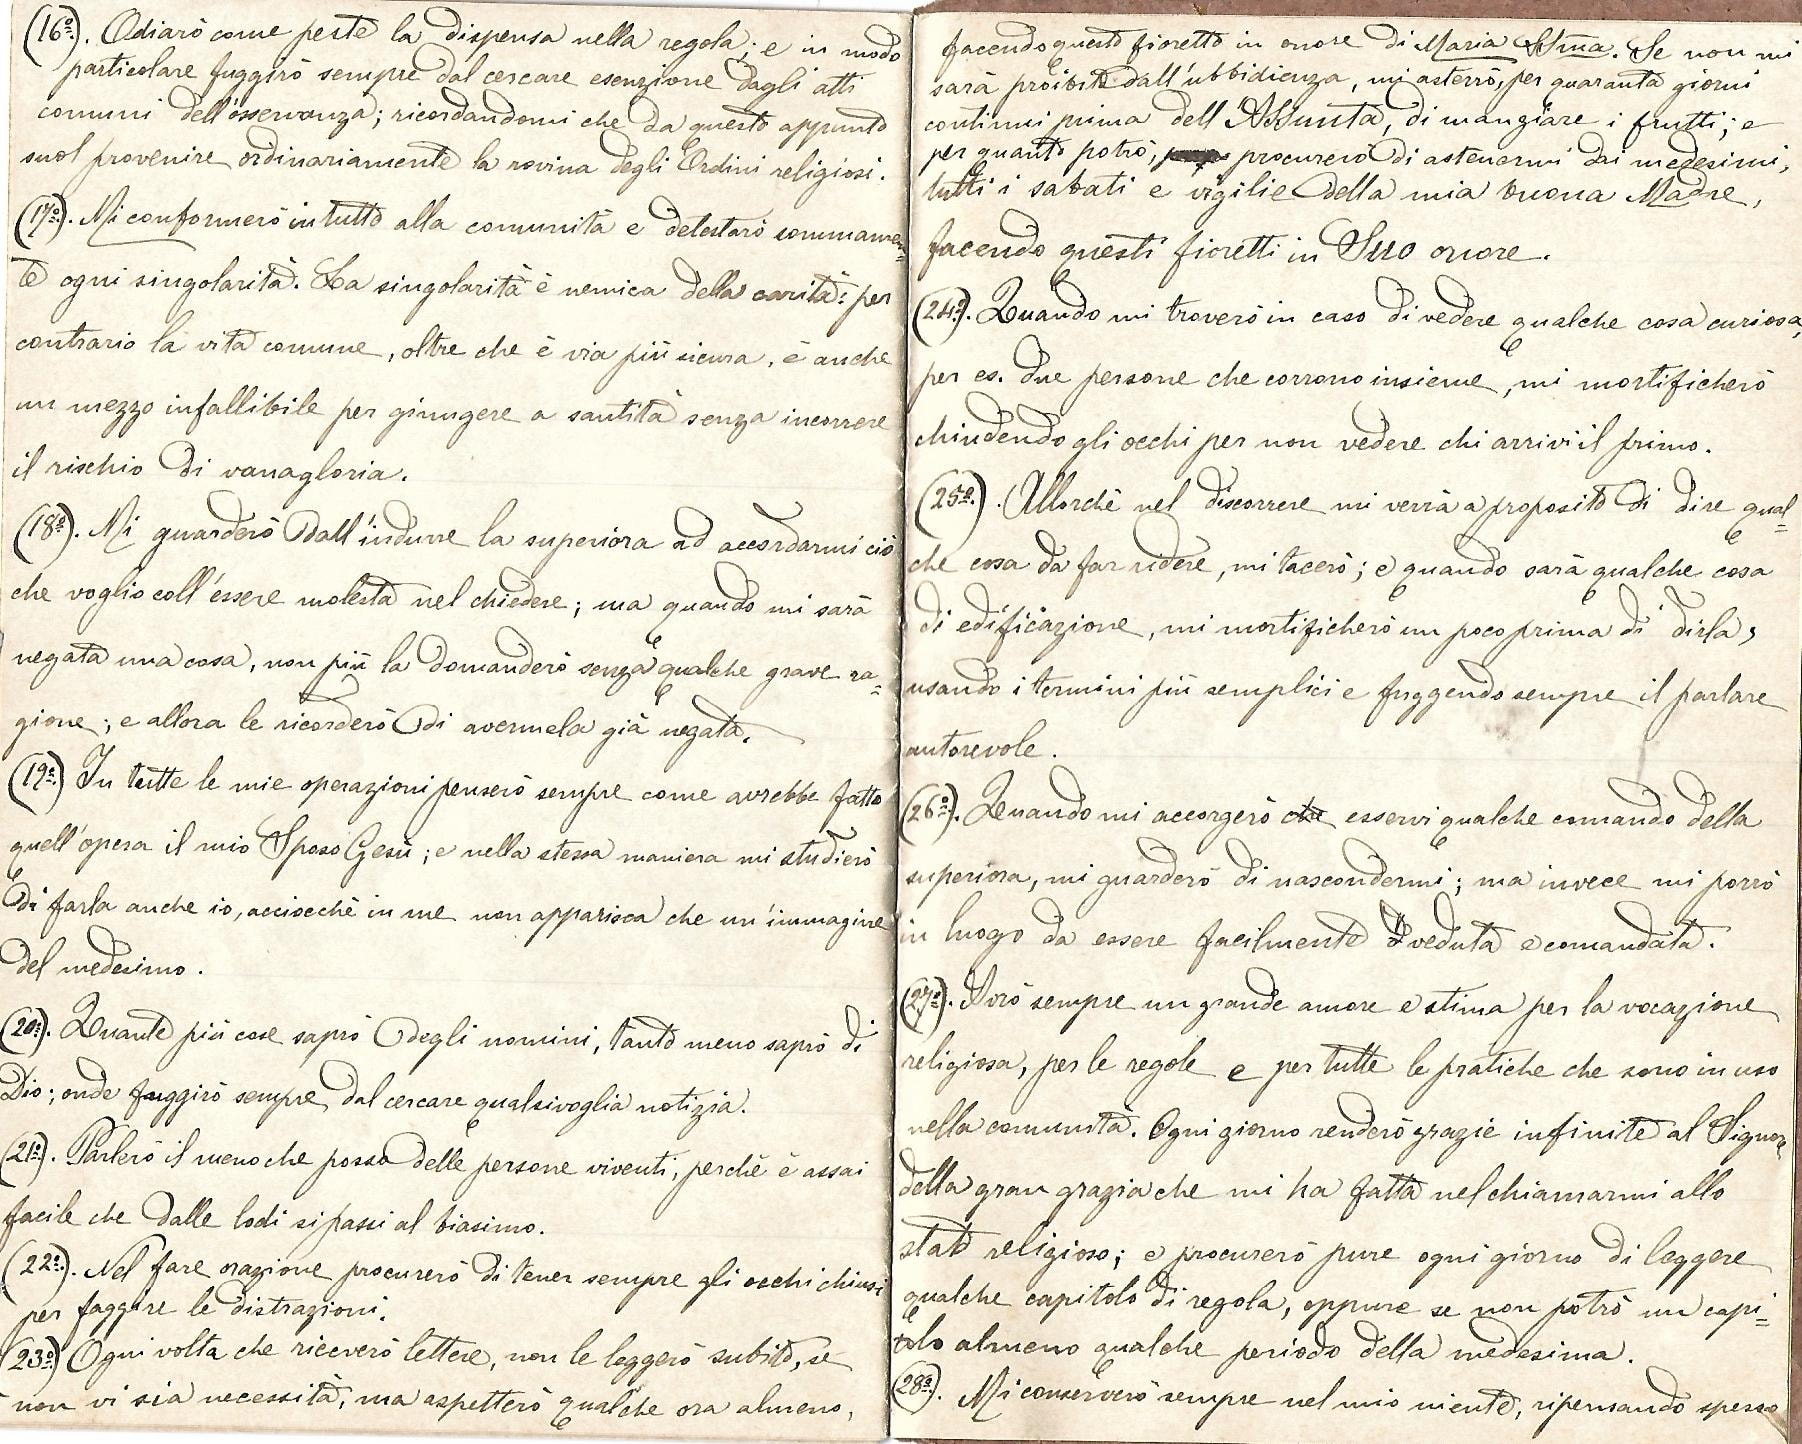 (16º). Odiarò come peste la dispensa nella regola; e in modo
particolare fuggirò sempre dal cercare esenzione dagli atti
comuni dell'osservanza; ricordandomi che da questo appunto
suol provenire ordinariamente la rovina degli Ordini religiosi.
(17º). Mi conformerò in tutto alla comunità e detesterò sommamen=
te ogni singolarità. La singolarità è nemica della carità: per
contrario la vita comune, oltre che è via più sicura, è anche
un mezzo infallibile per giungere a santità senza incorrere
il rischio di vanagloria.
(18º). Mi guarderò dall'indurre la superiora ad accordarmi ciò
che voglio coll'essere molesta nel chiedere; ma quando mi sarà
negata una cosa, non più la domanderò senza qualche grave ra=
gione; e allora le ricorderò di avermela già negata.
(19º.) In tutte le mie operazioni penserò sempre come avrebbe fatto
quell'opera il mio Sposo Gesù; e nella stessa maniera mi studierò
di farla anche io, acciocchè in me non apparisca che un'immagine
del medesimo.
(20º). Quante più cose saprò degli uomini, tanto meno saprò di
Dio; onde fuggirò sempre dal cercare qualsivoglia notizia.
(21º). Parlerò il meno che posso delle persone viventi, perchè è assai
facile che dalle lodi si passi al biasimo.
(22º). Nel fare orazione procurerò di tener sempre gli occhi chiusi
per fuggire le distrazioni.
(23º) Ogni volta che riceverò lettere, non le leggerò subito, se
non vi sia necessità, ma aspetterò qualche ora almeno,
facendo questo fioretto in onore di Maria SSma. Se non mi
sarà proibito dall'ubbidienza, mi asterrò, per quaranta giorni
continui prima dell'Assunta, di mangiare i frutti; e
per quanto potrò, procurerò di astenermi dai medesimi,
tutti i sabati e vigilie della mia buona Madre,
facendo questi fioretti in Suo onore.
(24º). Quando mi troverò in caso di vedere qualche cosa curiosa,
per es. due persone che corrono insieme, mi mortificherò
chiudendo gli occhi per non vedere chi arrivi il primo.
(25º.) . Allorchè nel discorrere mi verrà a proposito di dire qual=
che cosa da far ridere, mi tacerò; e quando sarà qualche cosa
di edificazione, mi mortificherò un poco prima di dirla,
usando i termini più semplici e fuggendo sempre il parlare
autorevole.
(26º.). Quando mi accorgerò che esservi qualche comando della
superiora, mi guarderò di nascondermi; ma invece mi porrò
in luogo da essere facilmente veduta e comandata.
(27º). Avrò sempre un grande amore e stima per la vocazione
religiosa, per le regole e per tutte le pratiche che sono in uso
nella comunità. Ogni giorno renderò grazie infinite al Signore
della gran grazia che mi ha fatta nel chiamarmi allo
stato religioso; e procurerò pure ogni giorno di leggere
qualche capitolo di regola, oppure se non potrò un capi=
tolo almeno qualche periodo della medesima.
(28º.). Mi conserverò sempre nel mio niente, ripensando spesso